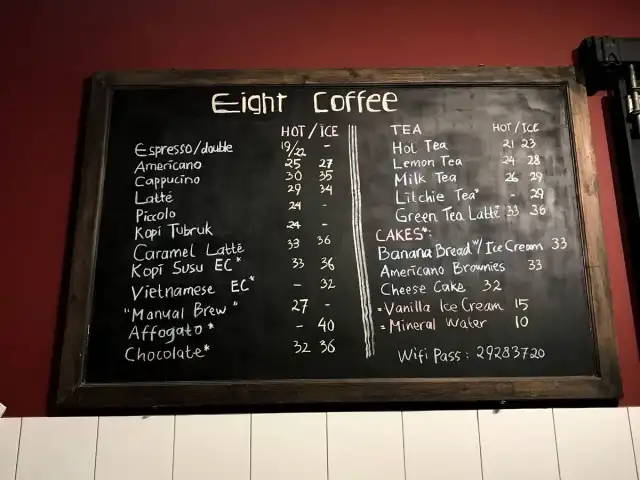 Eight Coffee
HOT / ICE
Espresso/double 19/22 -
Americano 25 27
Cappucino 30 35
Latté 29 34
Piccolo 24 -
Kopi Tubruk 24 -
Caramel Latté 33 36
Kopi Susu EC* 33 36
Vietnamese EC* - 32
"Manual Brew" 27 -
Affogato* - 40
Chocolate* 32 36
TEA HOT / ICE
Hot Tea 21 23
Lemon Tea 24 28
Milk Tea 26 29
Litchie Tea* - 29
Green Tea Latté 33 36
CAKES*:
Banana Bread*/Ice Cream 33
Americano Brownies 33
Cheese Cake 32
- Vanilla Ice Cream 15
- Mineral Water 10
Wifi Pass: 29283720